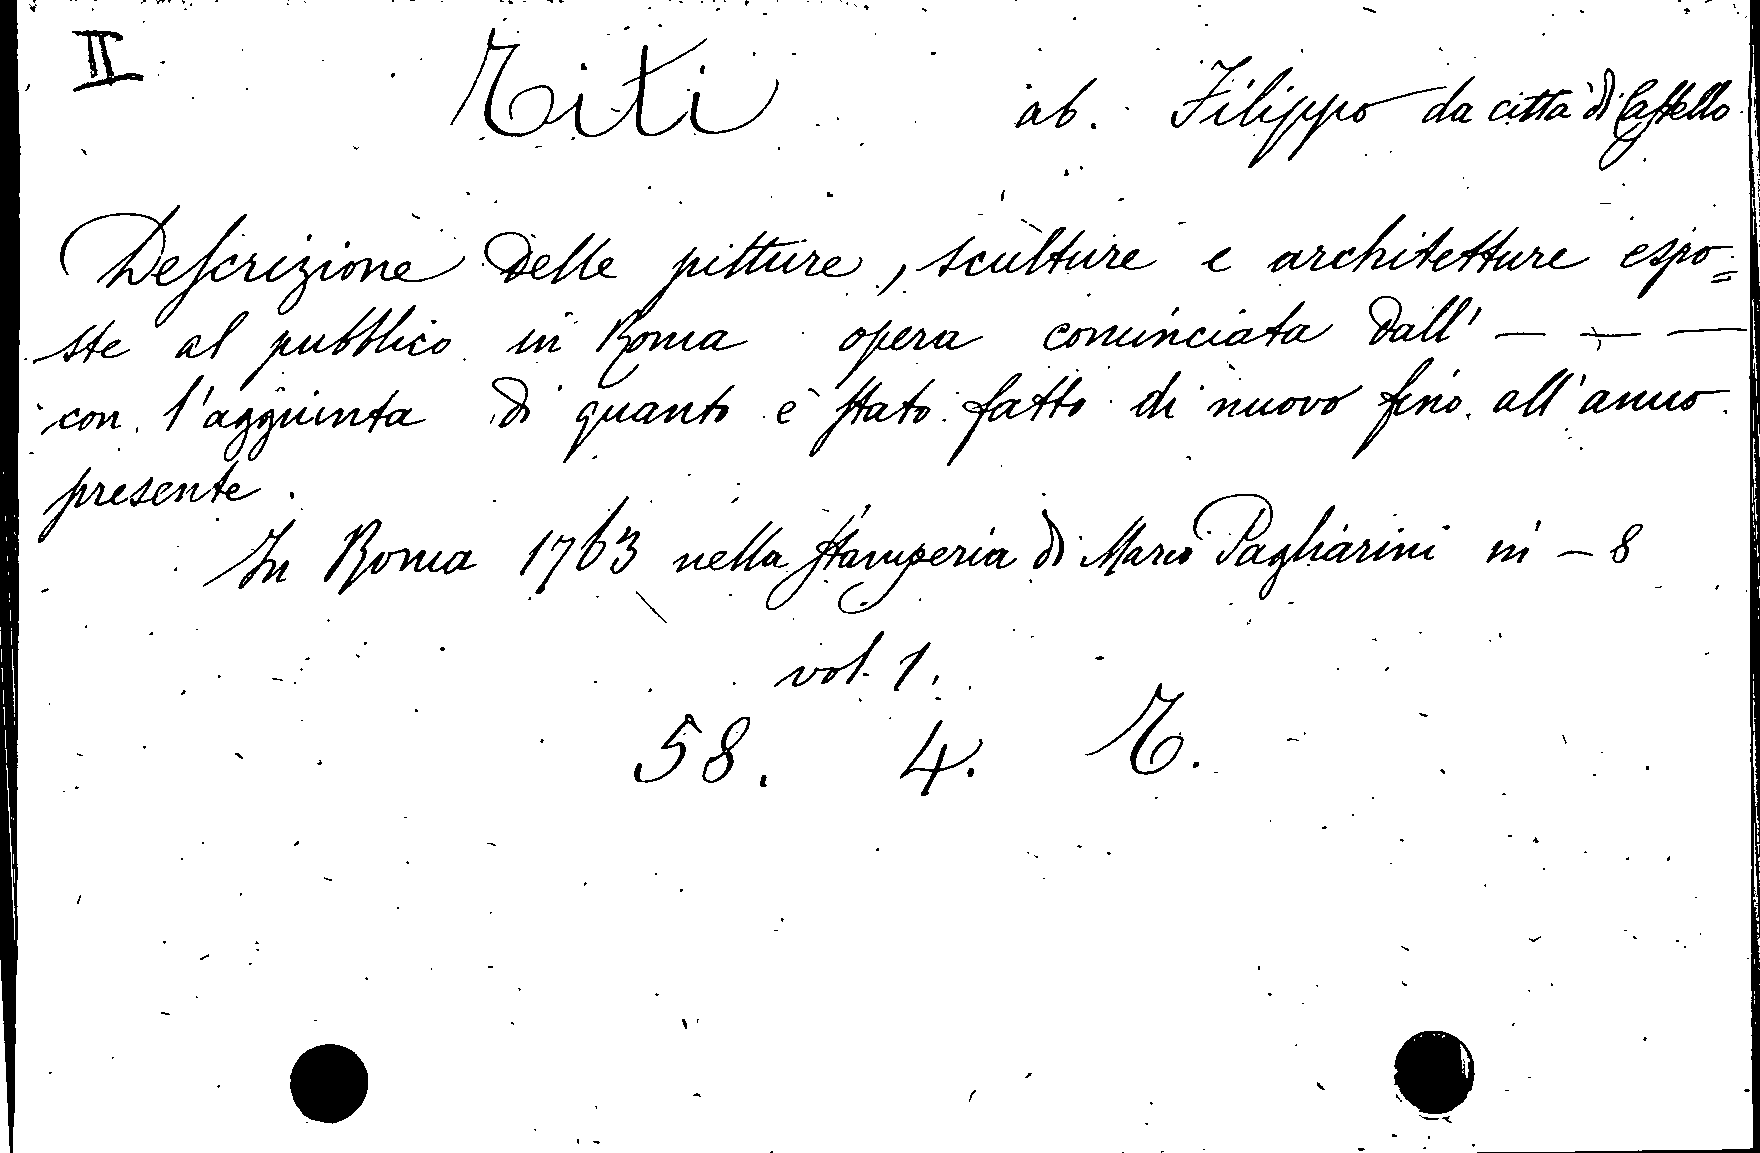 II Titi ab. Filippo da città di Castello
Descrizione delle pitture, sculture e architetture espo=
ste al pubblico in Roma opera cominciata dall' — — —
con l'aggiunta di quanto è stato fatto di nuovo fino all'anno
presente.
In Roma 1763 nella stamperia di Marco Pagliarini in - 8
vol. 1.
58. 4. T.